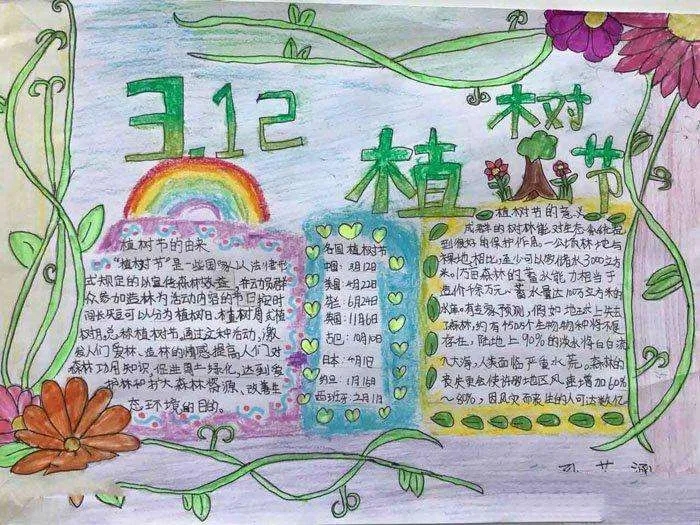 3.12
植树节
植树节的由来
"植树节"是一些国家以法律形
式规定的以宣传森林效益,并动员群
众参加造林为活动内容的节日按时
间长短可以分为植树日、植树周或植
树月,总称植树节。通过这种活动,激
发人们爱林、造林的情感,提高人们对
森林功用知识,促进国土绿化,达到爱
护林和扩大森林资源、改善生
态环境的目的。
各国植树节
中国:3月12日
美国:4月22日
6月24日
英国:11月6日
古巴:10月10日
日本:4月1日
约旦:1月16日
西班牙:2月1日
植树节的意义
成群的树林能对生态系统起
到很好的保护作用。一公顷林地与
裸地相比,至少可以多储水3000立方
米。1万亩森林的蓄水能力相当于
蓄水量达100万立方米的
水库。有专家预测,假如地球上失去
了森林,约有450万个生物物种将不复
存在,陆地上90%的淡水将白白流
入大海,人类面临严重水荒。森林的
丧失更会使许多地区风速增加60%
~80%,因风灾而丧生的人可达数亿